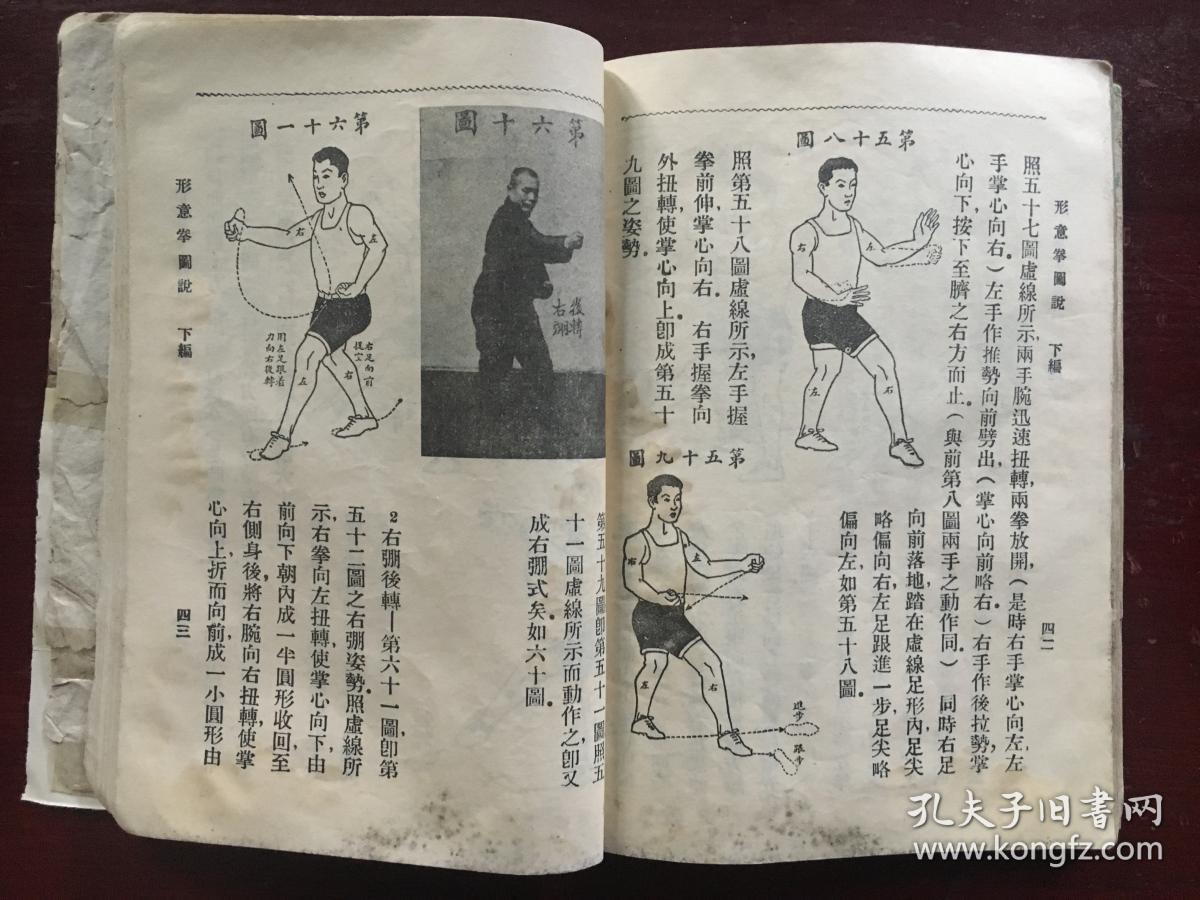 形意拳圖說　下編
四二
照五十七圖虛線所示,兩手腕迅速扭轉,兩拳放開,(是時右手掌心向左,左
手掌心向右。)左手作推勢向前劈出,(掌心向前略右)右手作後拉勢,掌
心向下,按下至臍之右方而止。(與前第八圖兩手之動作同。)同時右足
向前落地,踏在虛線足形內,足尖
略偏向右,左足跟進一步,足尖略
偏向左,如第五十八圖。
第五十八圖
右
左
左
右
照第五十八圖虛線所示,左手握
拳前伸,掌心向右。右手握拳向
外扭轉,使掌心向上,卽成第五十
九圖之姿勢。
第五十九圖
右
左
左
右
進步
跟步
第五十九圖卽第五十一圖,照五
十一圖虛線所示而動作之,卽又
成右弸式矣,如六十圖。
第六十圖
後轉
右弸
2 右弸後轉—第六十一圖,卽第
五十二圖之右弸姿勢。照虛線所
示,右拳向左扭轉,使掌心向下,由
前向下朝內成一半圓形收回至
右側身後,將右腕向右扭轉,使掌
心向上,折而向前,成一小圓形,由
第六十一圖
右
左
左
右
右足向前
提空
用左足跟着
力向右後轉
形意拳圖說　下編
四三
孔夫子旧書网
www.kongfz.com